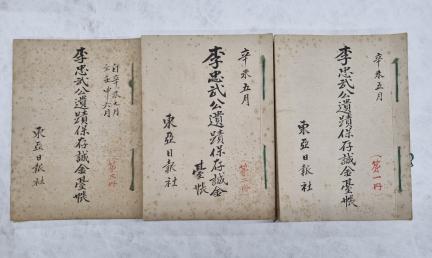 辛未五月
(第一冊)
李忠武公遺蹟保存誠金臺帳
東亞日報社
辛未五月
(第二冊)
李忠武公遺蹟保存誠金
臺帳
東亞日報社
自辛未 月
至壬申六月
李忠武公遺蹟保存誠金臺帳
東亞日報社